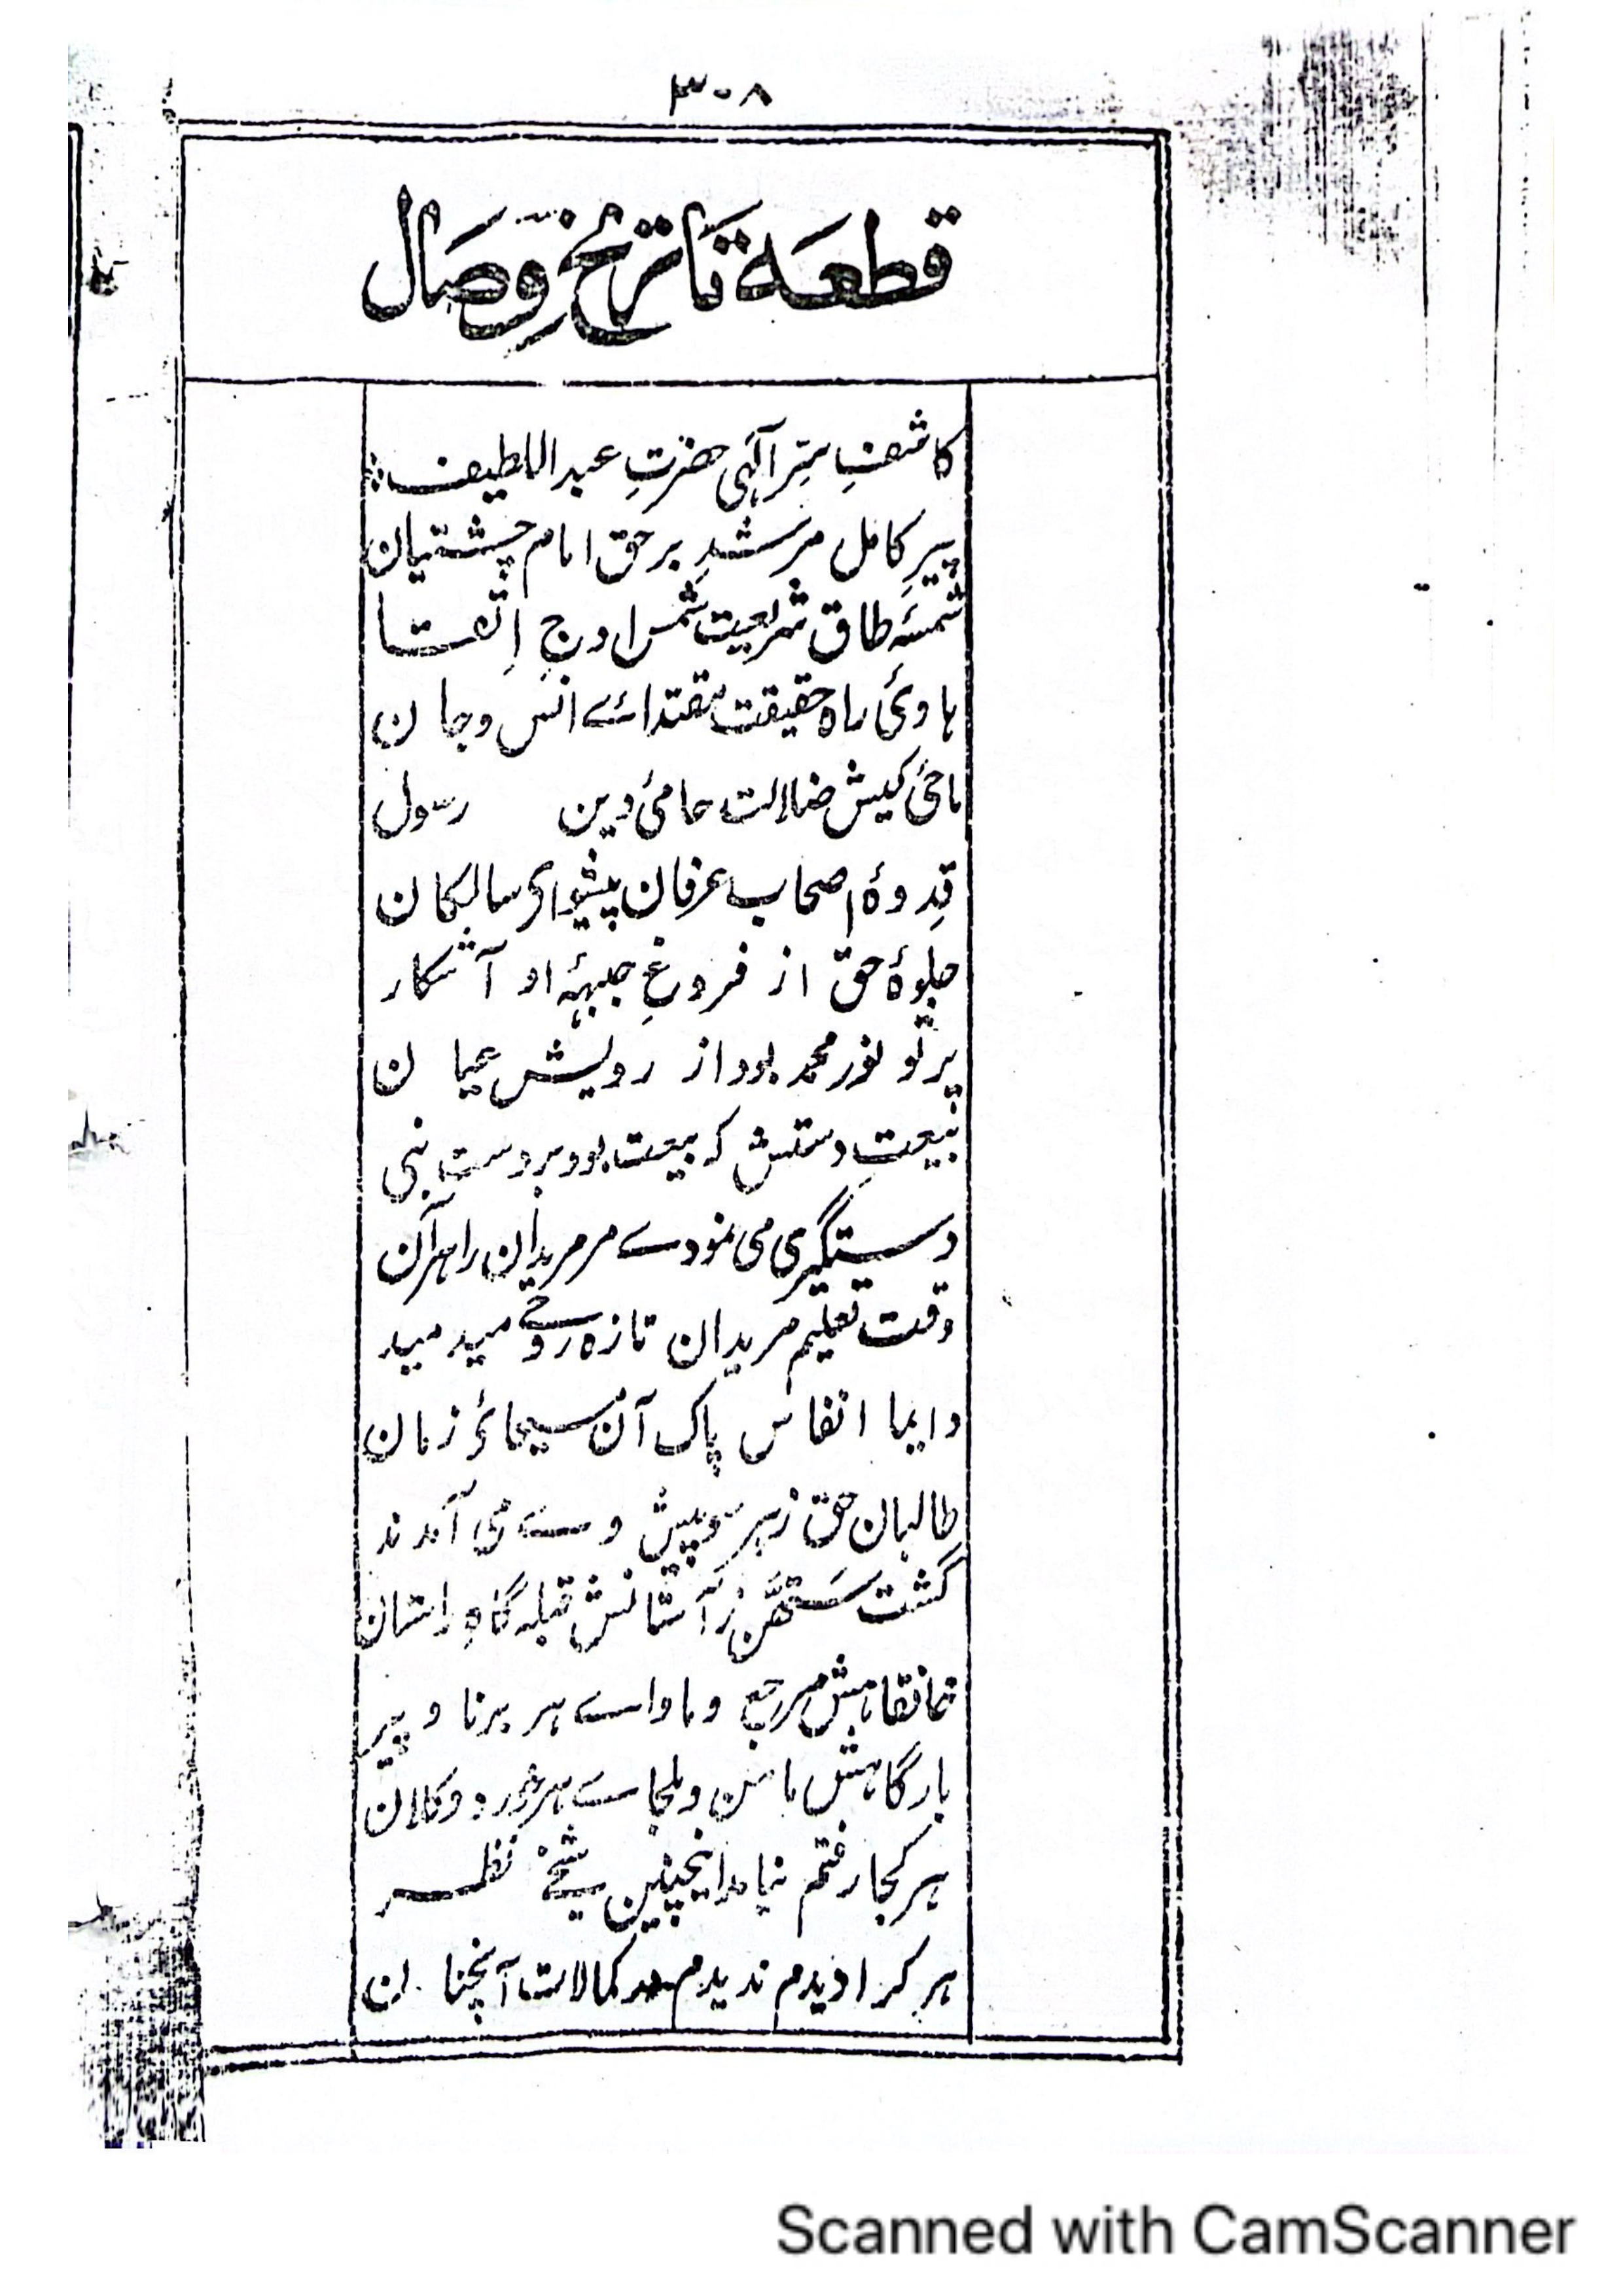 ۳۰۸
قطعہ تاریخ وصال
کاشفِ سِرِّ الٰہی حضرتِ عبداللطیف
پیرِ کامل مرشدِ برحق امام چشتیان
شمسۂ طاق شریعت شمس اوجِ اِتّقا
ہادیٔ راہ حقیقت مقتدائے انس و جان
ماحیٔ کیش ضلالت حامیٔ دین رسول
قِدوۂ اصحاب عرفان پیشوای سالکان
جلوۂ حق از فروغِ جبہۂ او آشکار
پرتو نور محمد بود از رویش عیان
بیعتِ دستش کہ بیعت بود بر دستِ نبی
دستگیری می نمودے مر مریدان را ہر آن
وقت تعلیم مریدان تازہ روحے میدمید
دایما انفاس پاک آن مسیحائ زمان
طالبان حق زہر سو پیش وے می آمدند
گشت ستھن ز آستانش قبلہ گاہِ راستان
خانقاہش مرجع و ماواے ہر برنا و پیر
بارگاہش مامن و ملجاے ہر خورد و کلان
ہر کجا رفتم نیامد اینچنین شیخے نظر
ہر کرا دیدم ندیدم در کمالات آنچنان
Scanned with CamScanner